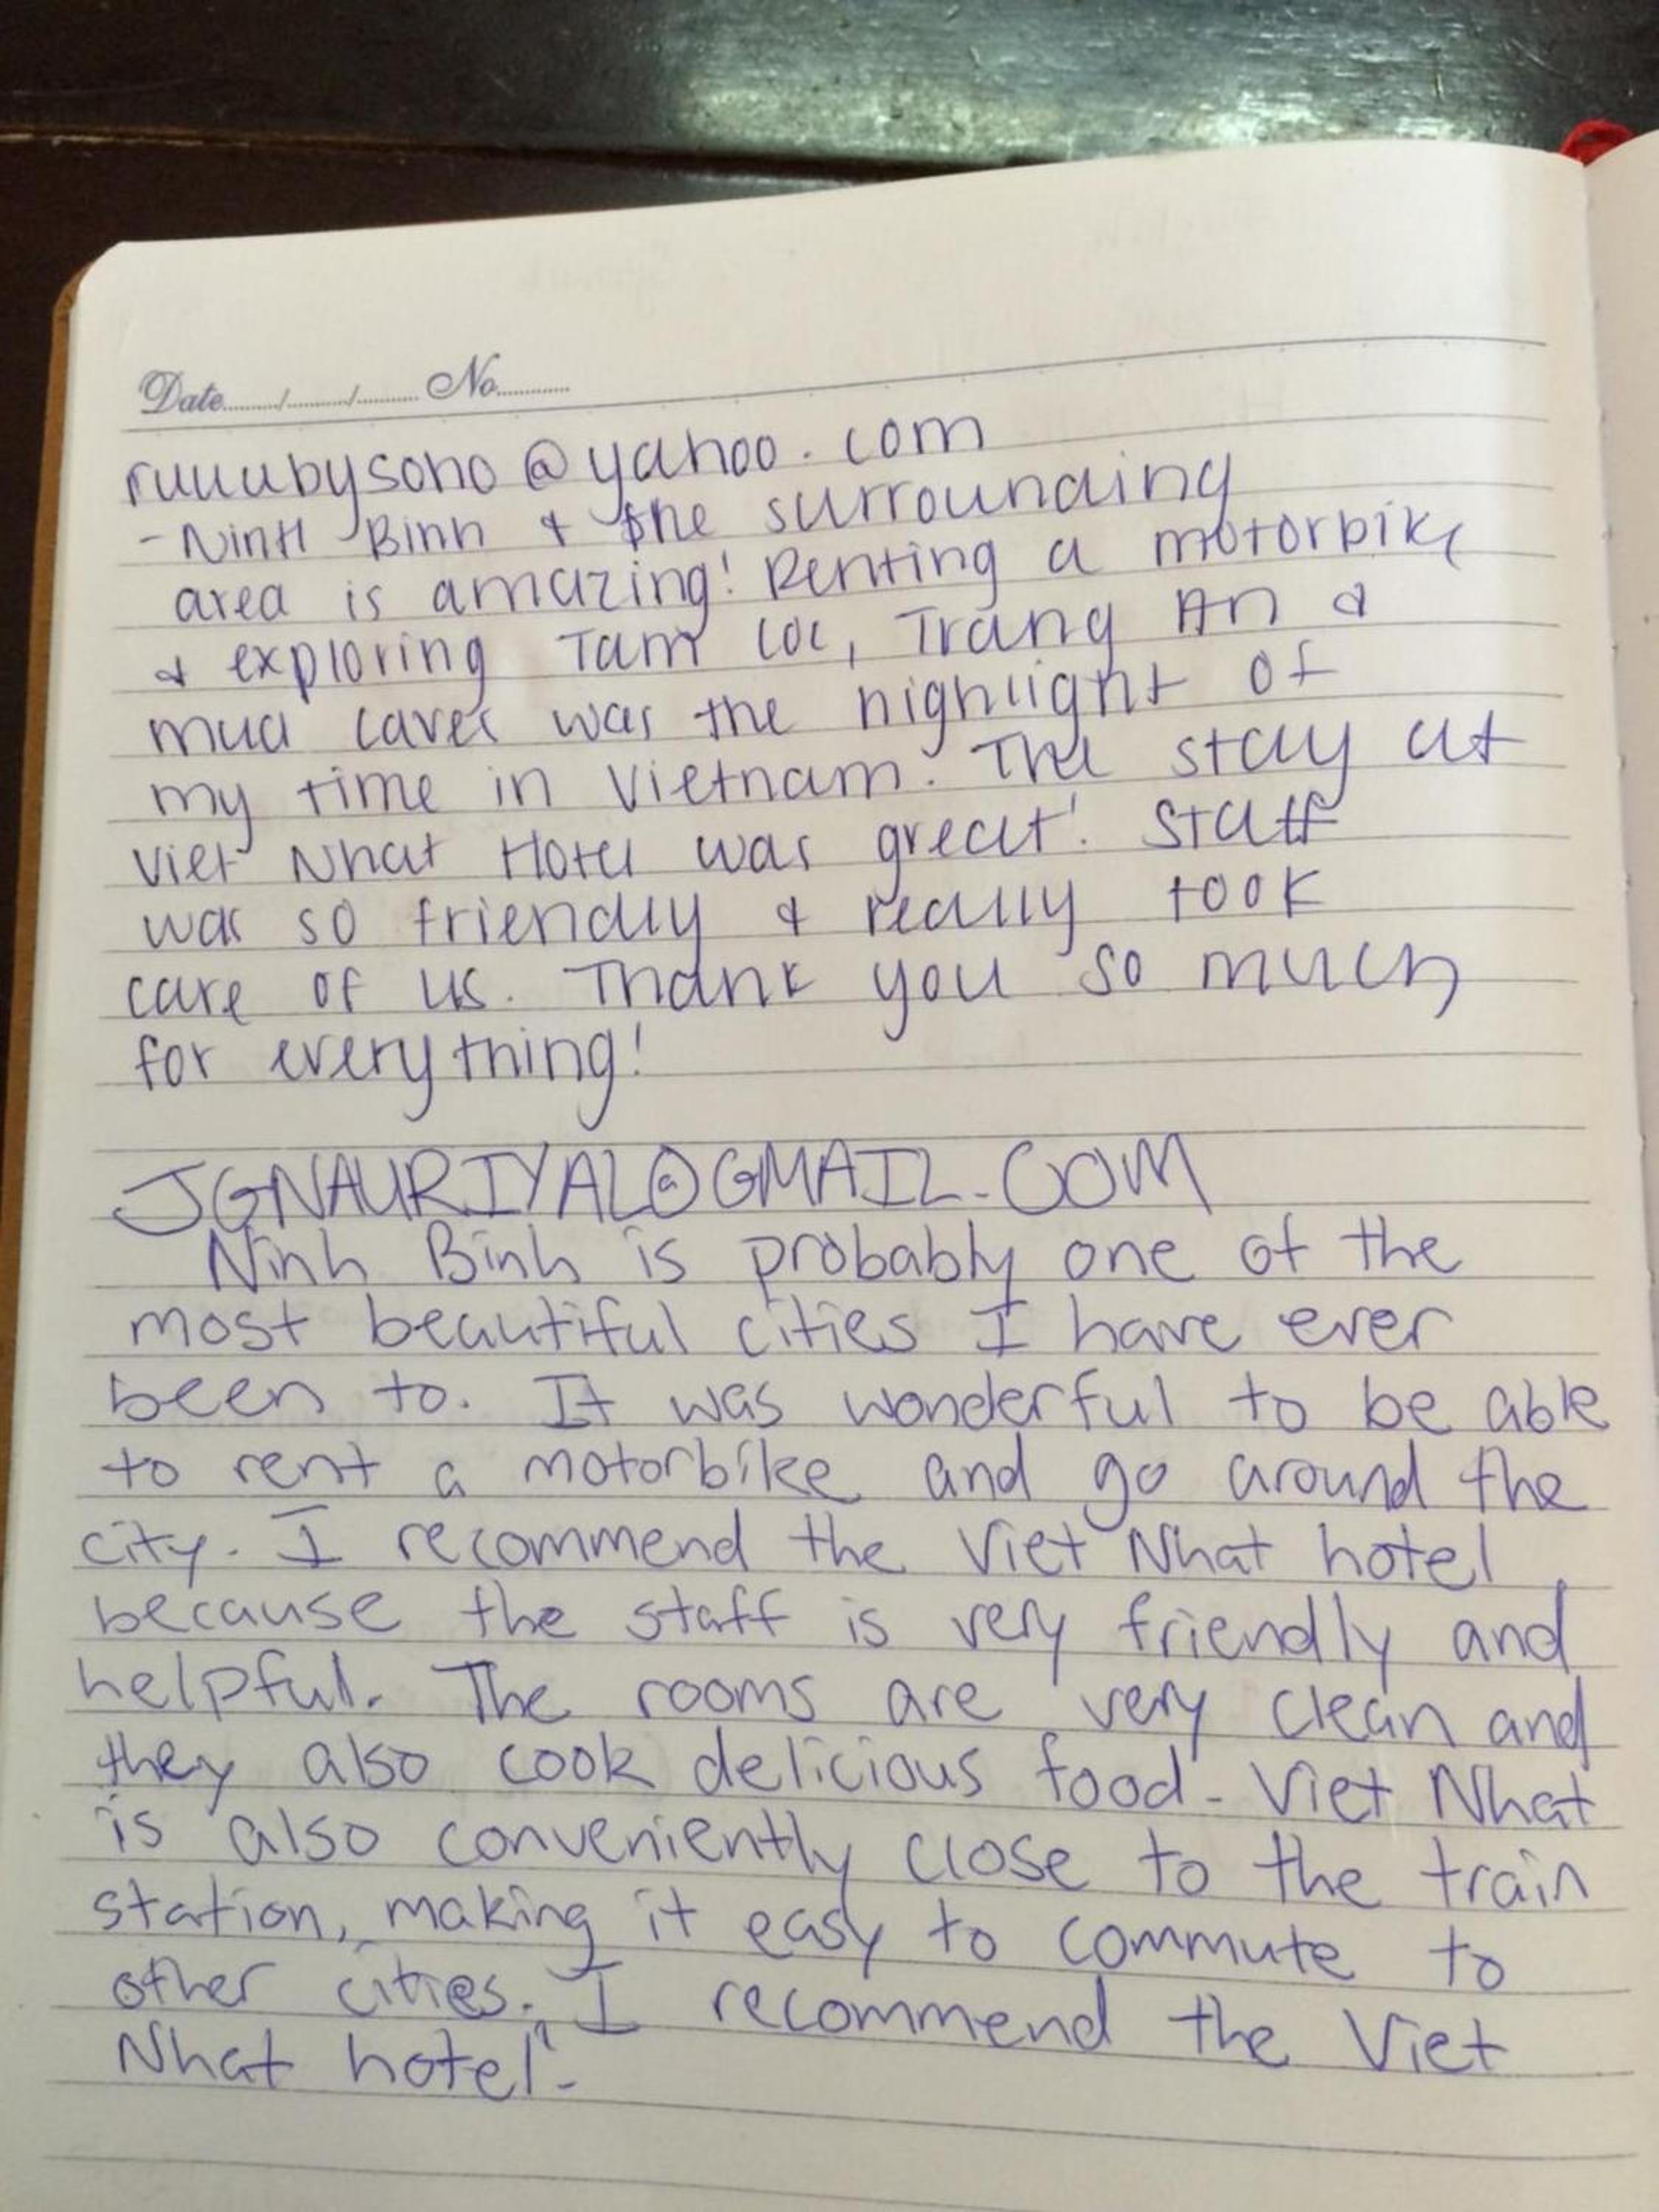 Date......../......../........ No..........
ruuubysoho@yahoo.com
- Ninh Binh & the surrounding
area is amazing! Renting a motorbike
& exploring Tam Coc, Trang An &
mua caves was the highlight of
my time in Vietnam. The stay at
Viet Nhat Hotel was great! Staff
was so friendly & really took
care of us. Thank you so much
for everything!
JGNAURIYAL@GMAIL.COM
Ninh Binh is probably one of the
most beautiful cities I have ever
been to. It was wonderful to be able
to rent a motorbike and go around the
city. I recommend the Viet Nhat hotel
because the staff is very friendly and
helpful. The rooms are very clean and
they also cook delicious food. Viet Nhat
is also conveniently close to the train
station, making it easy to commute to
other cities. I recommend the Viet
Nhat hotel.